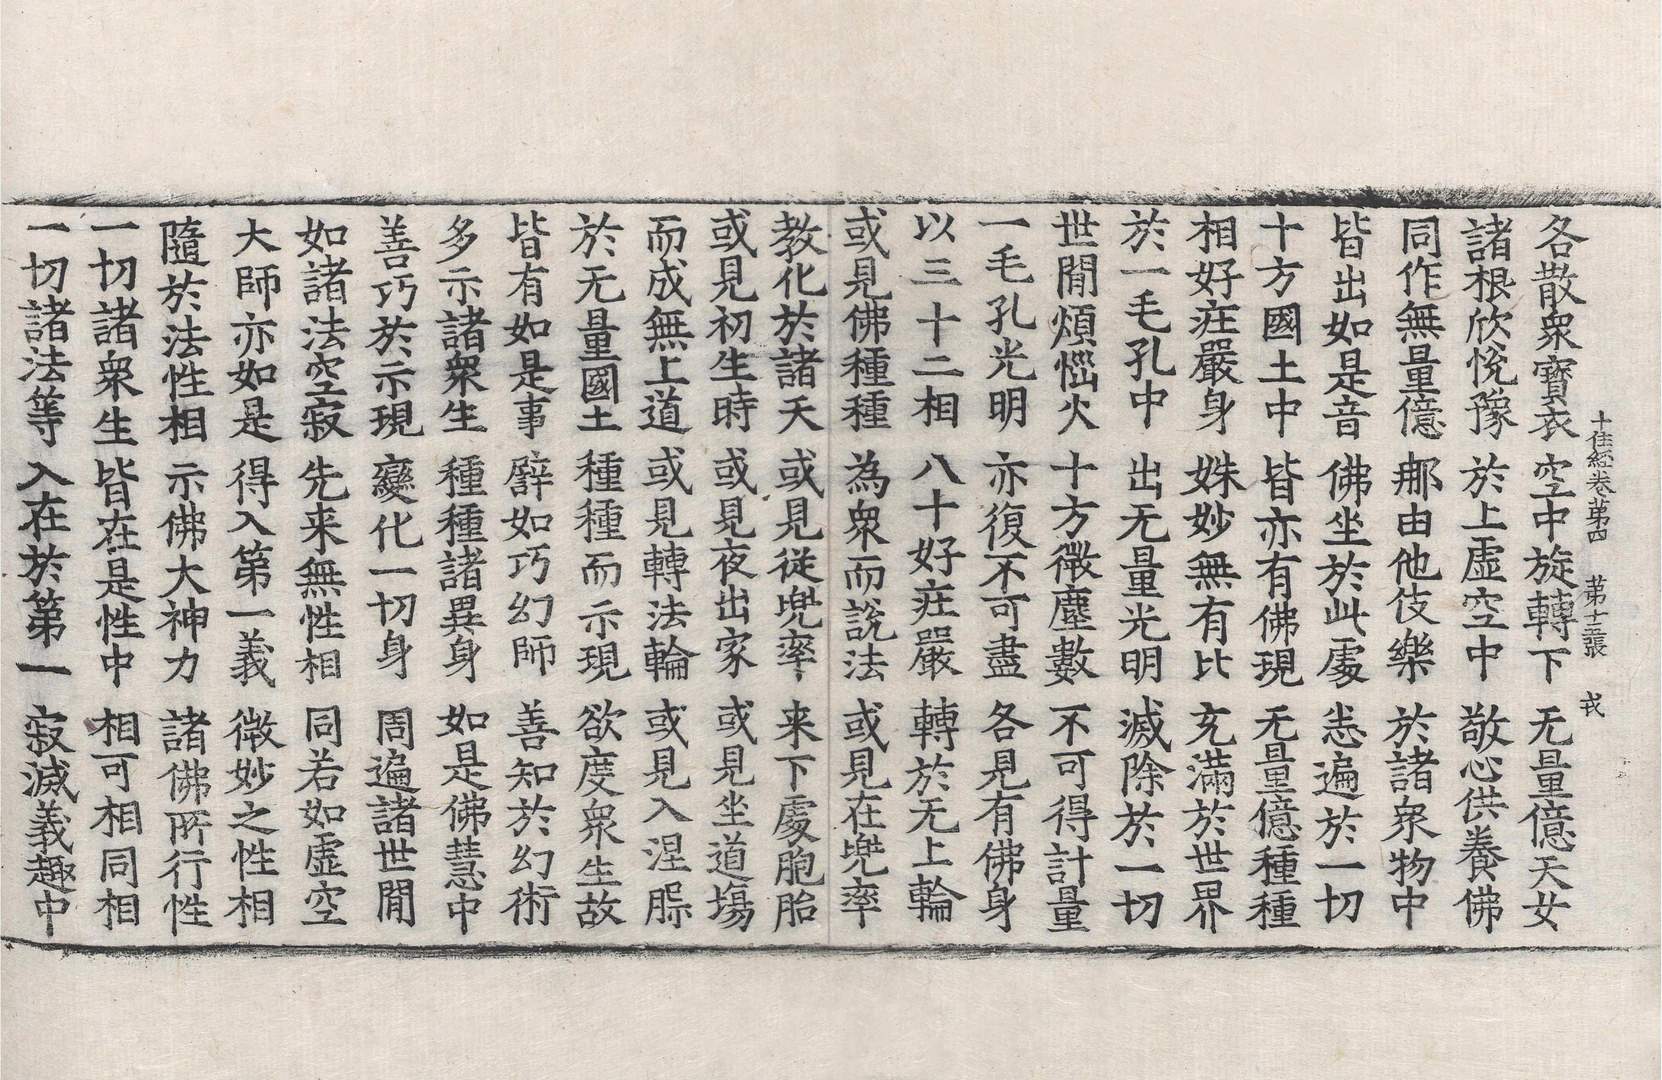 十住經卷第四　第十三張　戎
各散衆寶衣　空中旋轉下　无量億天女
諸根欣悅豫　於上虛空中　敬心供養佛
同作無量億　那由他伎樂　於諸衆物中
皆出如是音　佛坐於此處　悉遍於一切
十方國土中　皆亦有佛現　无量億種種
相好莊嚴身　姝妙無有比　充滿於世界
於一毛孔中　出无量光明　滅除於一切
世閒煩惱火　十方微塵數　不可得計量
一毛孔光明　亦復不可盡　各見有佛身
以三十二相　八十好莊嚴　轉於无上輪
或見佛種種　為衆而說法　或見在兜率
教化於諸天　或見從兜率　来下處胞胎
或見初生時　或見夜出家　或見坐道場
而成無上道　或見轉法輪　或見入涅槃
於无量國土　種種而示現　欲度衆生故
皆有如是事　譬如巧幻師　善知於幻術
多示諸衆生　種種諸異身　如是佛慧中
善巧於示現　變化一切身　周遍諸世閒
如諸法空寂　先来無性相　同若如虛空
大師亦如是　得入第一義　微妙之性相
隨於法性相　示佛大神力　諸佛所行性
一切諸衆生　皆在是性中　相可相同相
一切諸法等　入在於第一　寂滅義趣中